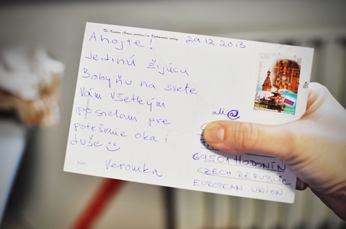 Ahojte!
29.12.2013
Jedinú žijúcu
Bohyňu na svete
Vám všetkým
posielam pre
potešenie oka i
duše
Veronika
69501 HODONÍN
CZECH REPUBLIC
EUROPEAN UNION